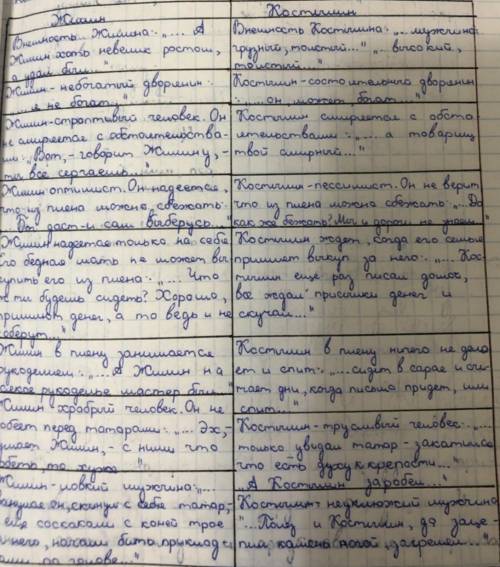 Жилин
Костылин
Внешность Жилина: „.... А
Жилин хоть невелик ростом,
а удал был..."
Внешность Костылина: „.. мужчина
грузный, толстый..." „.. высокий,
толстый..."
Жилин - небогатый дворянин:
... я не богат..."
Костылин - состоятельный дворянин
: ....он, может, богат..."
Жилин - строптивый человек. Он
не смиряется с обстоятельства-
ми: „Вот, - говорит Жилину, -
ты все серчаешь..."
Костылин смиряется с обсто
ятельствами: „.... а товарищ
твой смирный..."
Жилин оптимист. Он надеется,
что из плена можно сбежать:
бог даст - и сам выберусь..."
Костылин - пессимист. Он не верит
что из плена можно сбежать: „.. Да
как же бежать? Мы и дороги не знаем..."
Жилин надеется только на себя
Его бедная мать не может вы
купить его из плена: „.... Что
ж ты будешь сидеть? Хорошо,
пришлют денег, а то ведь и не
соберут..."
Костылин ждет, когда его семья
пришлет выкуп за него: „.... Кос-
тылин еще раз писал домой,
все ждал присылки денег и
скучал..."
Жилин в плену занимается
рукоделием: „....А Жилин на
всякое рукоделье мастер был..."
Костылин в плену ничего не дела
ет и спит: „.... сидит в сарае и счи-
тает дни, когда письмо придет, или
спит..."
Жилин - храбрый человек. Он не
робеет перед татарами: „.... Эх, -
думает Жилин, - с ними что
робеть, то хуже "
Костылин - трусливый человек: „....
только увидал татар - закатился
что есть духу к крепости..."
„...А Костылин заробел..."
Жилин - ловкий мужчина: „....
он, скинул с себя татар, -
еще соскакали с коней трое
на него, начали бить прикла
ми по голове..."
Костылин - неуклюжий мужчина
„...Полез и Костылин, да заце-
пил камень ногой, загремел..."